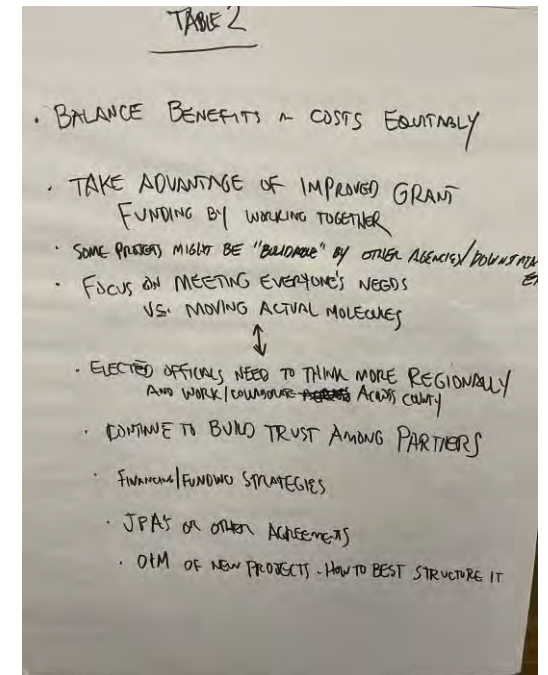 TABLE 2
· BALANCE BENEFITS ~ COSTS EQUITABLY
· TAKE ADVANTAGE OF IMPROVED GRANT
FUNDING BY WORKING TOGETHER
· SOME PROJECTS MIGHT BE "BUILDABLE" BY OTHER AGENCIES/
· FOCUS ON MEETING EVERYONE'S NEEDS
VS. MOVING ACTUAL MOLECULES
↕
· ELECTED OFFICIALS NEED TO THINK MORE REGIONALLY
AND WORK/COLLABORATE ACROSS COUNTY
· CONTINUE TO BUILD TRUST AMONG PARTNERS
· FINANCING/FUNDING STRATEGIES
· JPAs OR OTHER AGREEMENTS
· O&M OF NEW PROJECTS - HOW TO BEST STRUCTURE IT